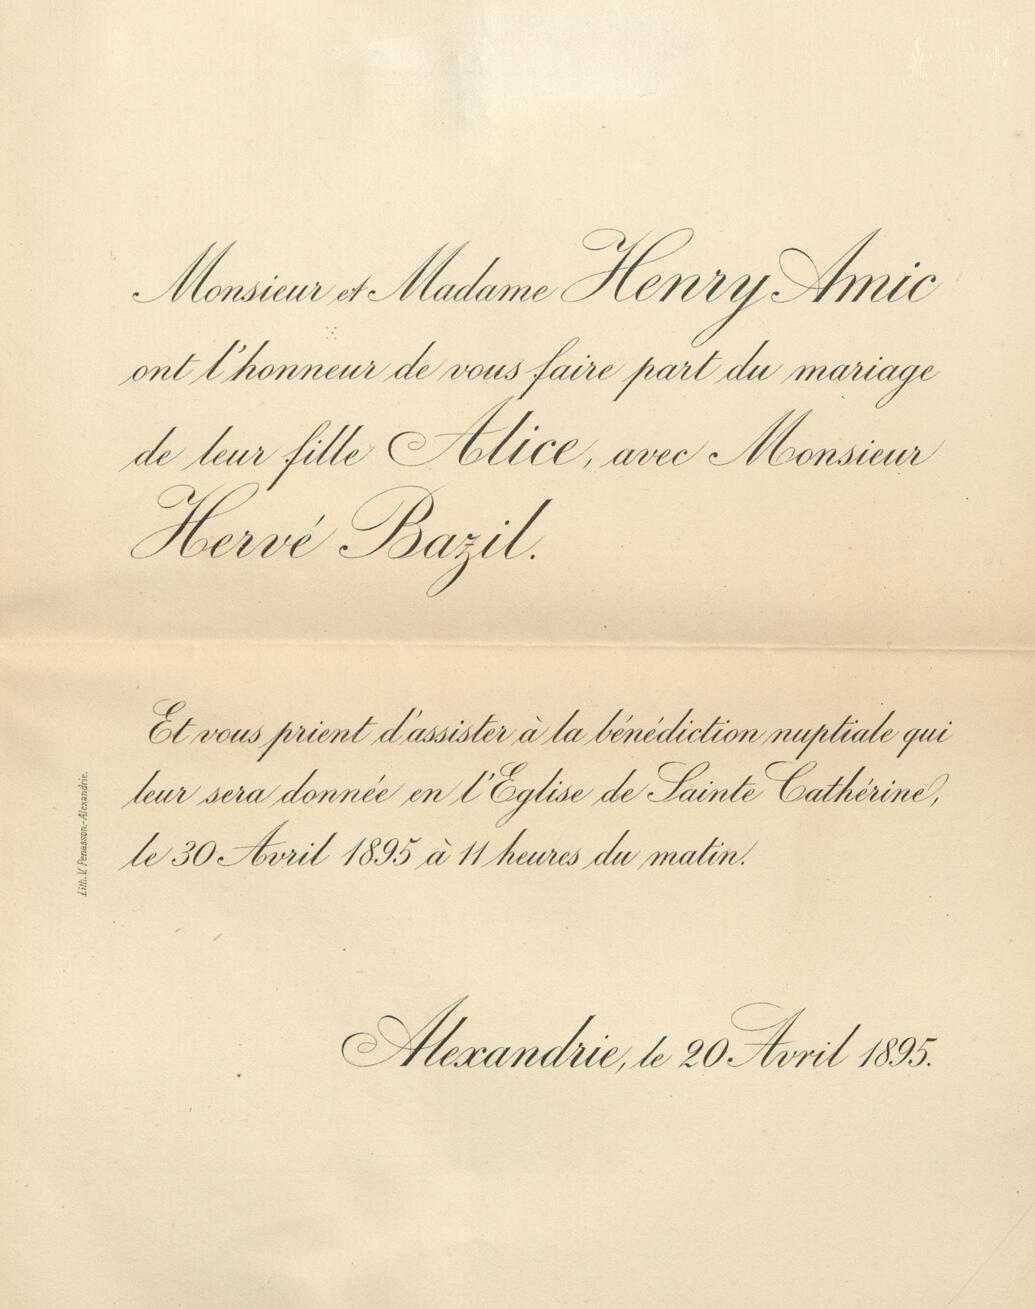 Monsieur et Madame Henry Amic
ont l'honneur de vous faire part du mariage
de leur fille Alice, avec Monsieur
Hervé Bazil.
Et vous prient d'assister à la bénédiction nuptiale qui
leur sera donnée en l'Eglise de Sainte Cathérine,
le 30 Avril 1895 à 11 heures du matin.
Alexandrie, le 20 Avril 1895.
Lith. V. Penasson.-Alexandrie.